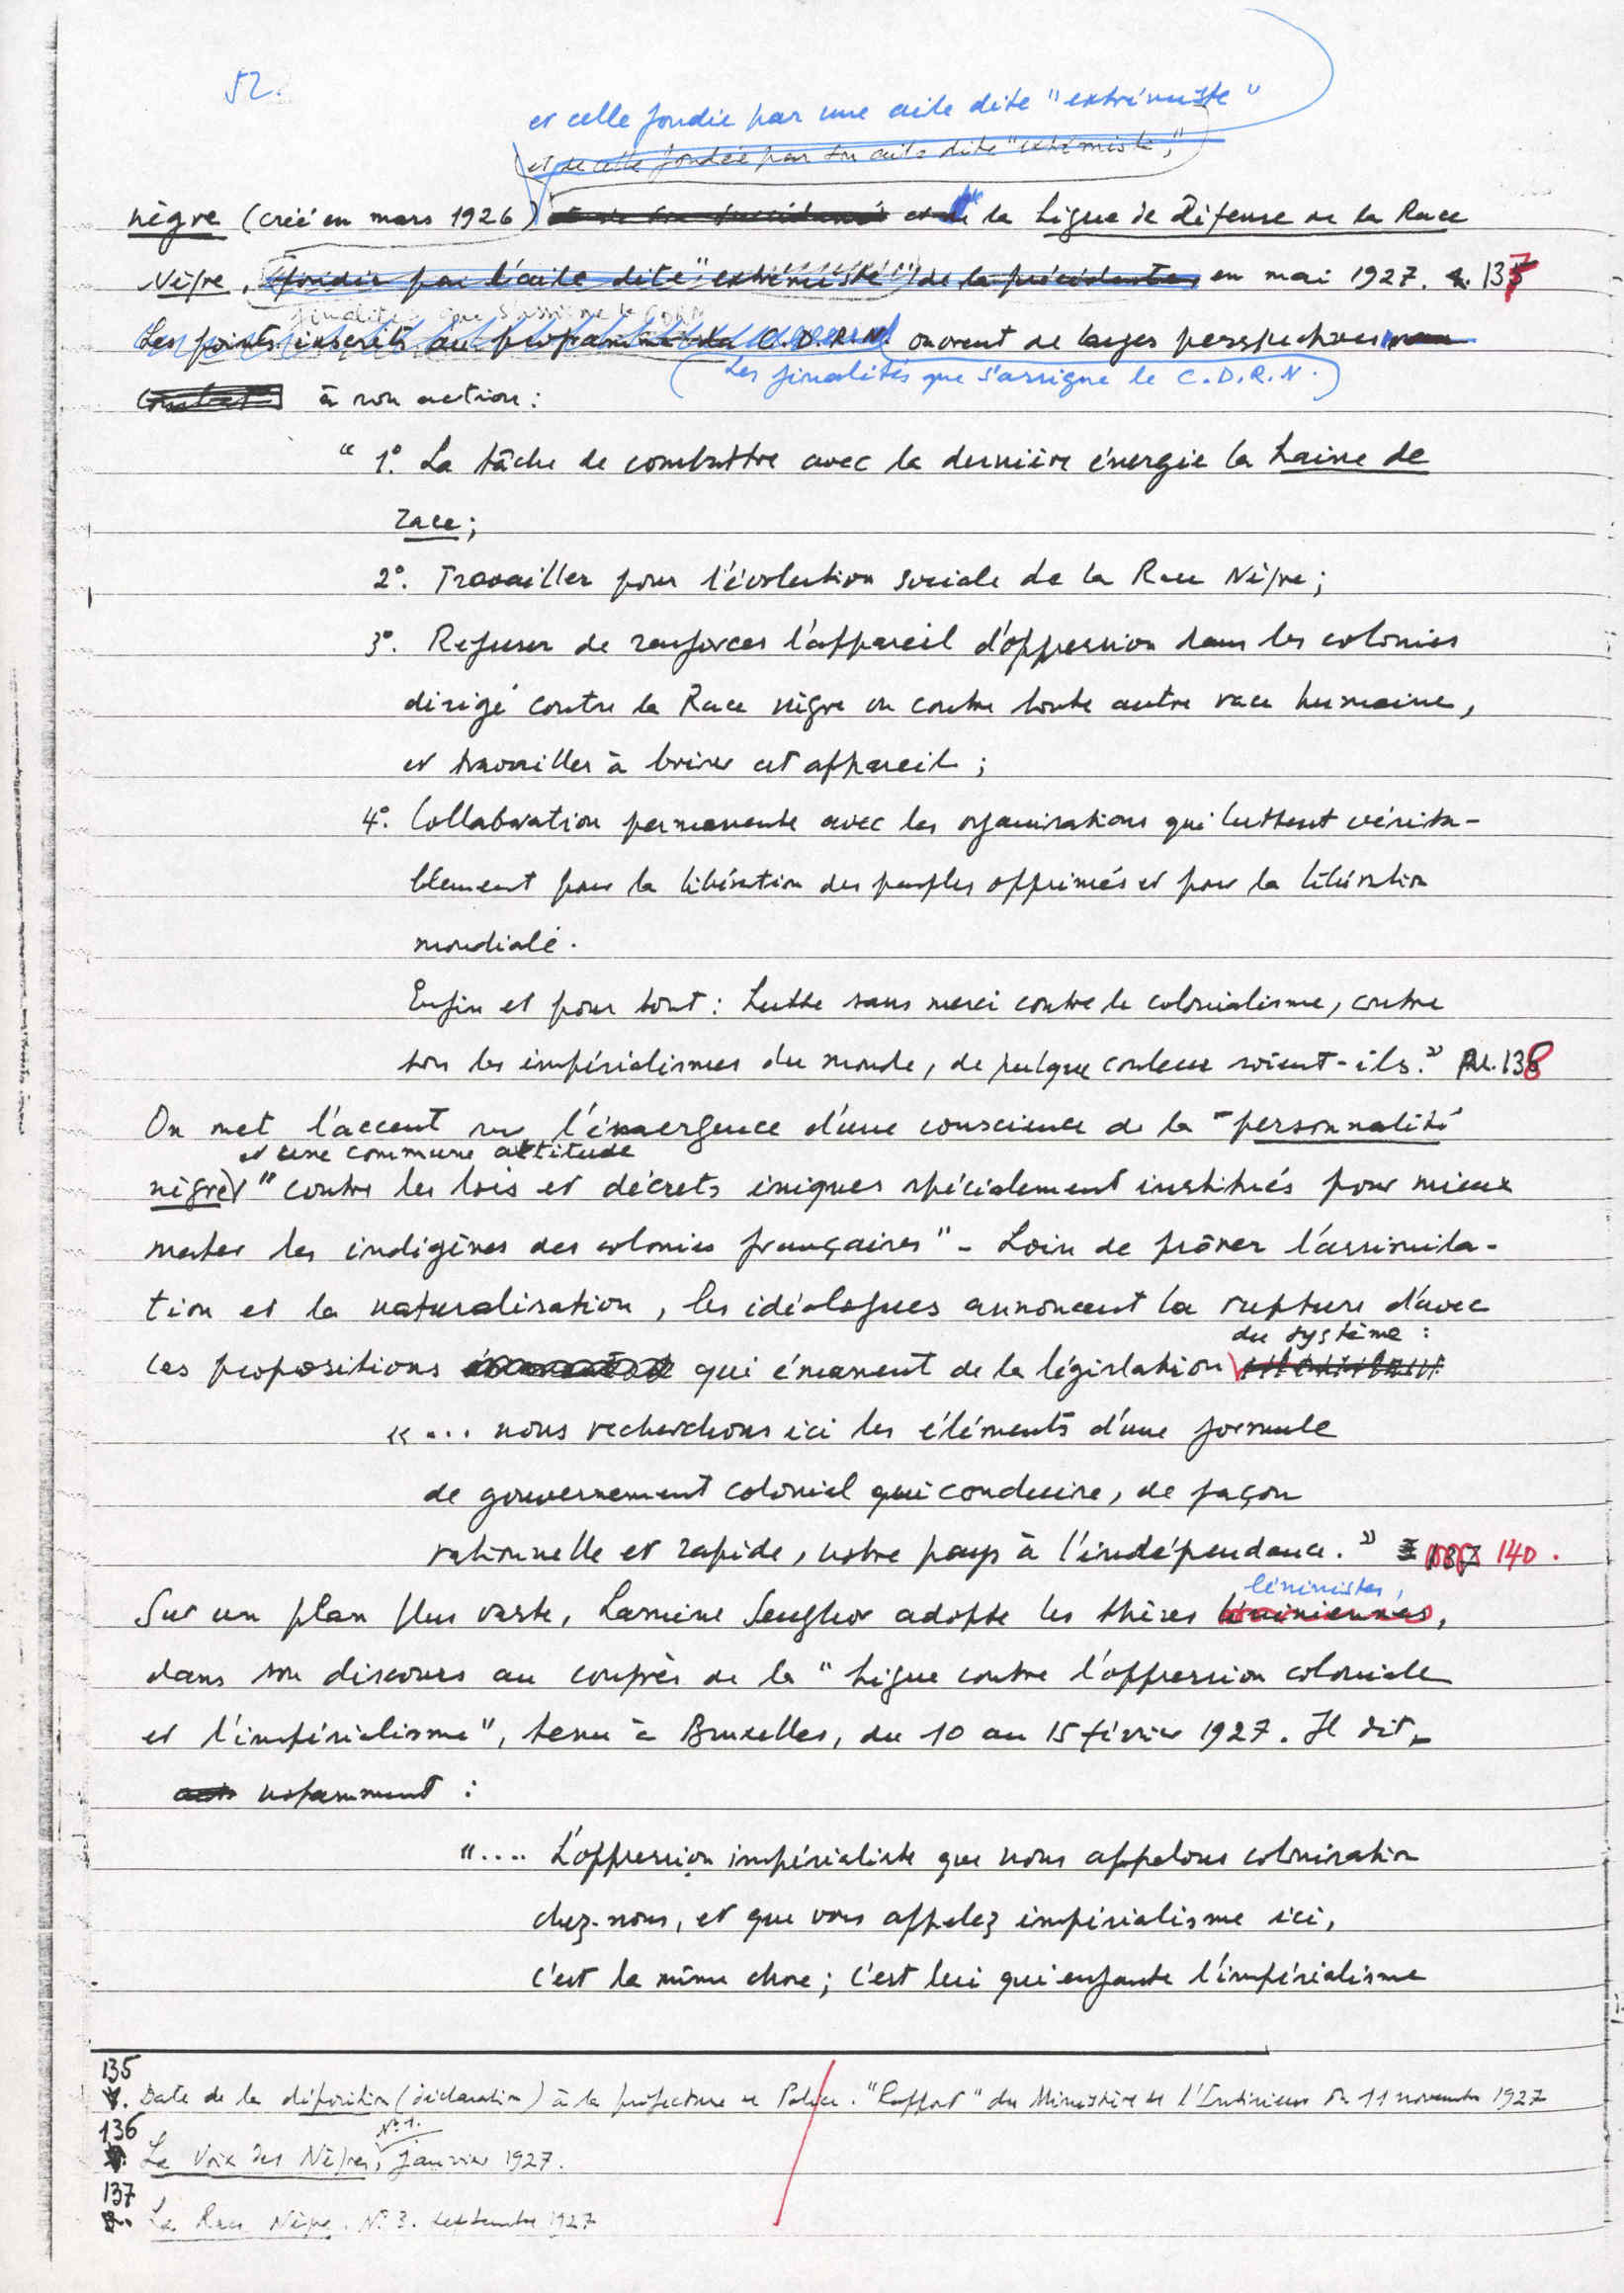 52.
et celle fondée par une aile dite "extrémiste"
et de celle fondée par son aile dite "extrémiste",
nègre (créé en mars 1926) et de la Ligue de Défense de la Race
Nègre, fondée par l'aile dite "extrémiste" de la précédente, en mai 1927. 137
finalités que s'assigne le CDRN
Les points inscrits au programme du C.D.R.N. ouvrent de larges perspectives
(Les finalités que s'assigne le C.D.R.N.)
combat à son action :
" 1º. La tâche de combattre avec la dernière énergie la haine de
race ;
2º. Travailler pour l'évolution sociale de la Race Nègre ;
3º. Refuser de renforcer l'appareil d'oppression dans les colonies
dirigé contre la Race nègre ou contre toute autre race humaine,
et travailler à briser cet appareil ;
4º. Collaboration permanente avec les organisations qui luttent vérita-
blement pour la libération des peuples opprimés et pour la libération
mondiale.
Enfin et pour tout : Lutte sans merci contre le colonialisme, contre
tous les impérialismes du monde, de quelque couleur soient-ils." 138
On met l'accent sur l'émergence d'une conscience de la "personnalité
et une commune attitude
nègre" "contre les lois et décrets iniques spécialement institués pour mieux
mater les indigènes des colonies françaises" - Loin de prôner l'assimila-
tion et la naturalisation, les idéologues annoncent la rupture d'avec
du système :
les propositions qui émanent de la législation
«... nous recherchons ici les éléments d'une formule
de gouvernement colonial qui conduire, de façon
rationnelle et rapide, notre pays à l'indépendance. » 140.
léninistes,
Sur un plan plus vaste, Lamine Senghor adopte les thèses léniniennes,
dans son discours au congrès de la "Ligue contre l'oppression coloniale
et l'impérialisme", tenu à Bruxelles, du 10 au 15 février 1927. Il dit
notamment :
".... L'oppression impérialiste que nous appelons colonisation
chez-nous, et que vous appelez impérialisme ici,
c'est la même chose ; c'est lui qui enfante l'impérialisme
135
. Date de la déposition (déclaration) à la préfecture de Police. "Rapport" du Ministère de l'Intérieur du 11 novembre 1927
136
Nº 1.
. La Voix des Nègres, janvier 1927.
137
. La Race Nègre. Nº 3. septembre 1927